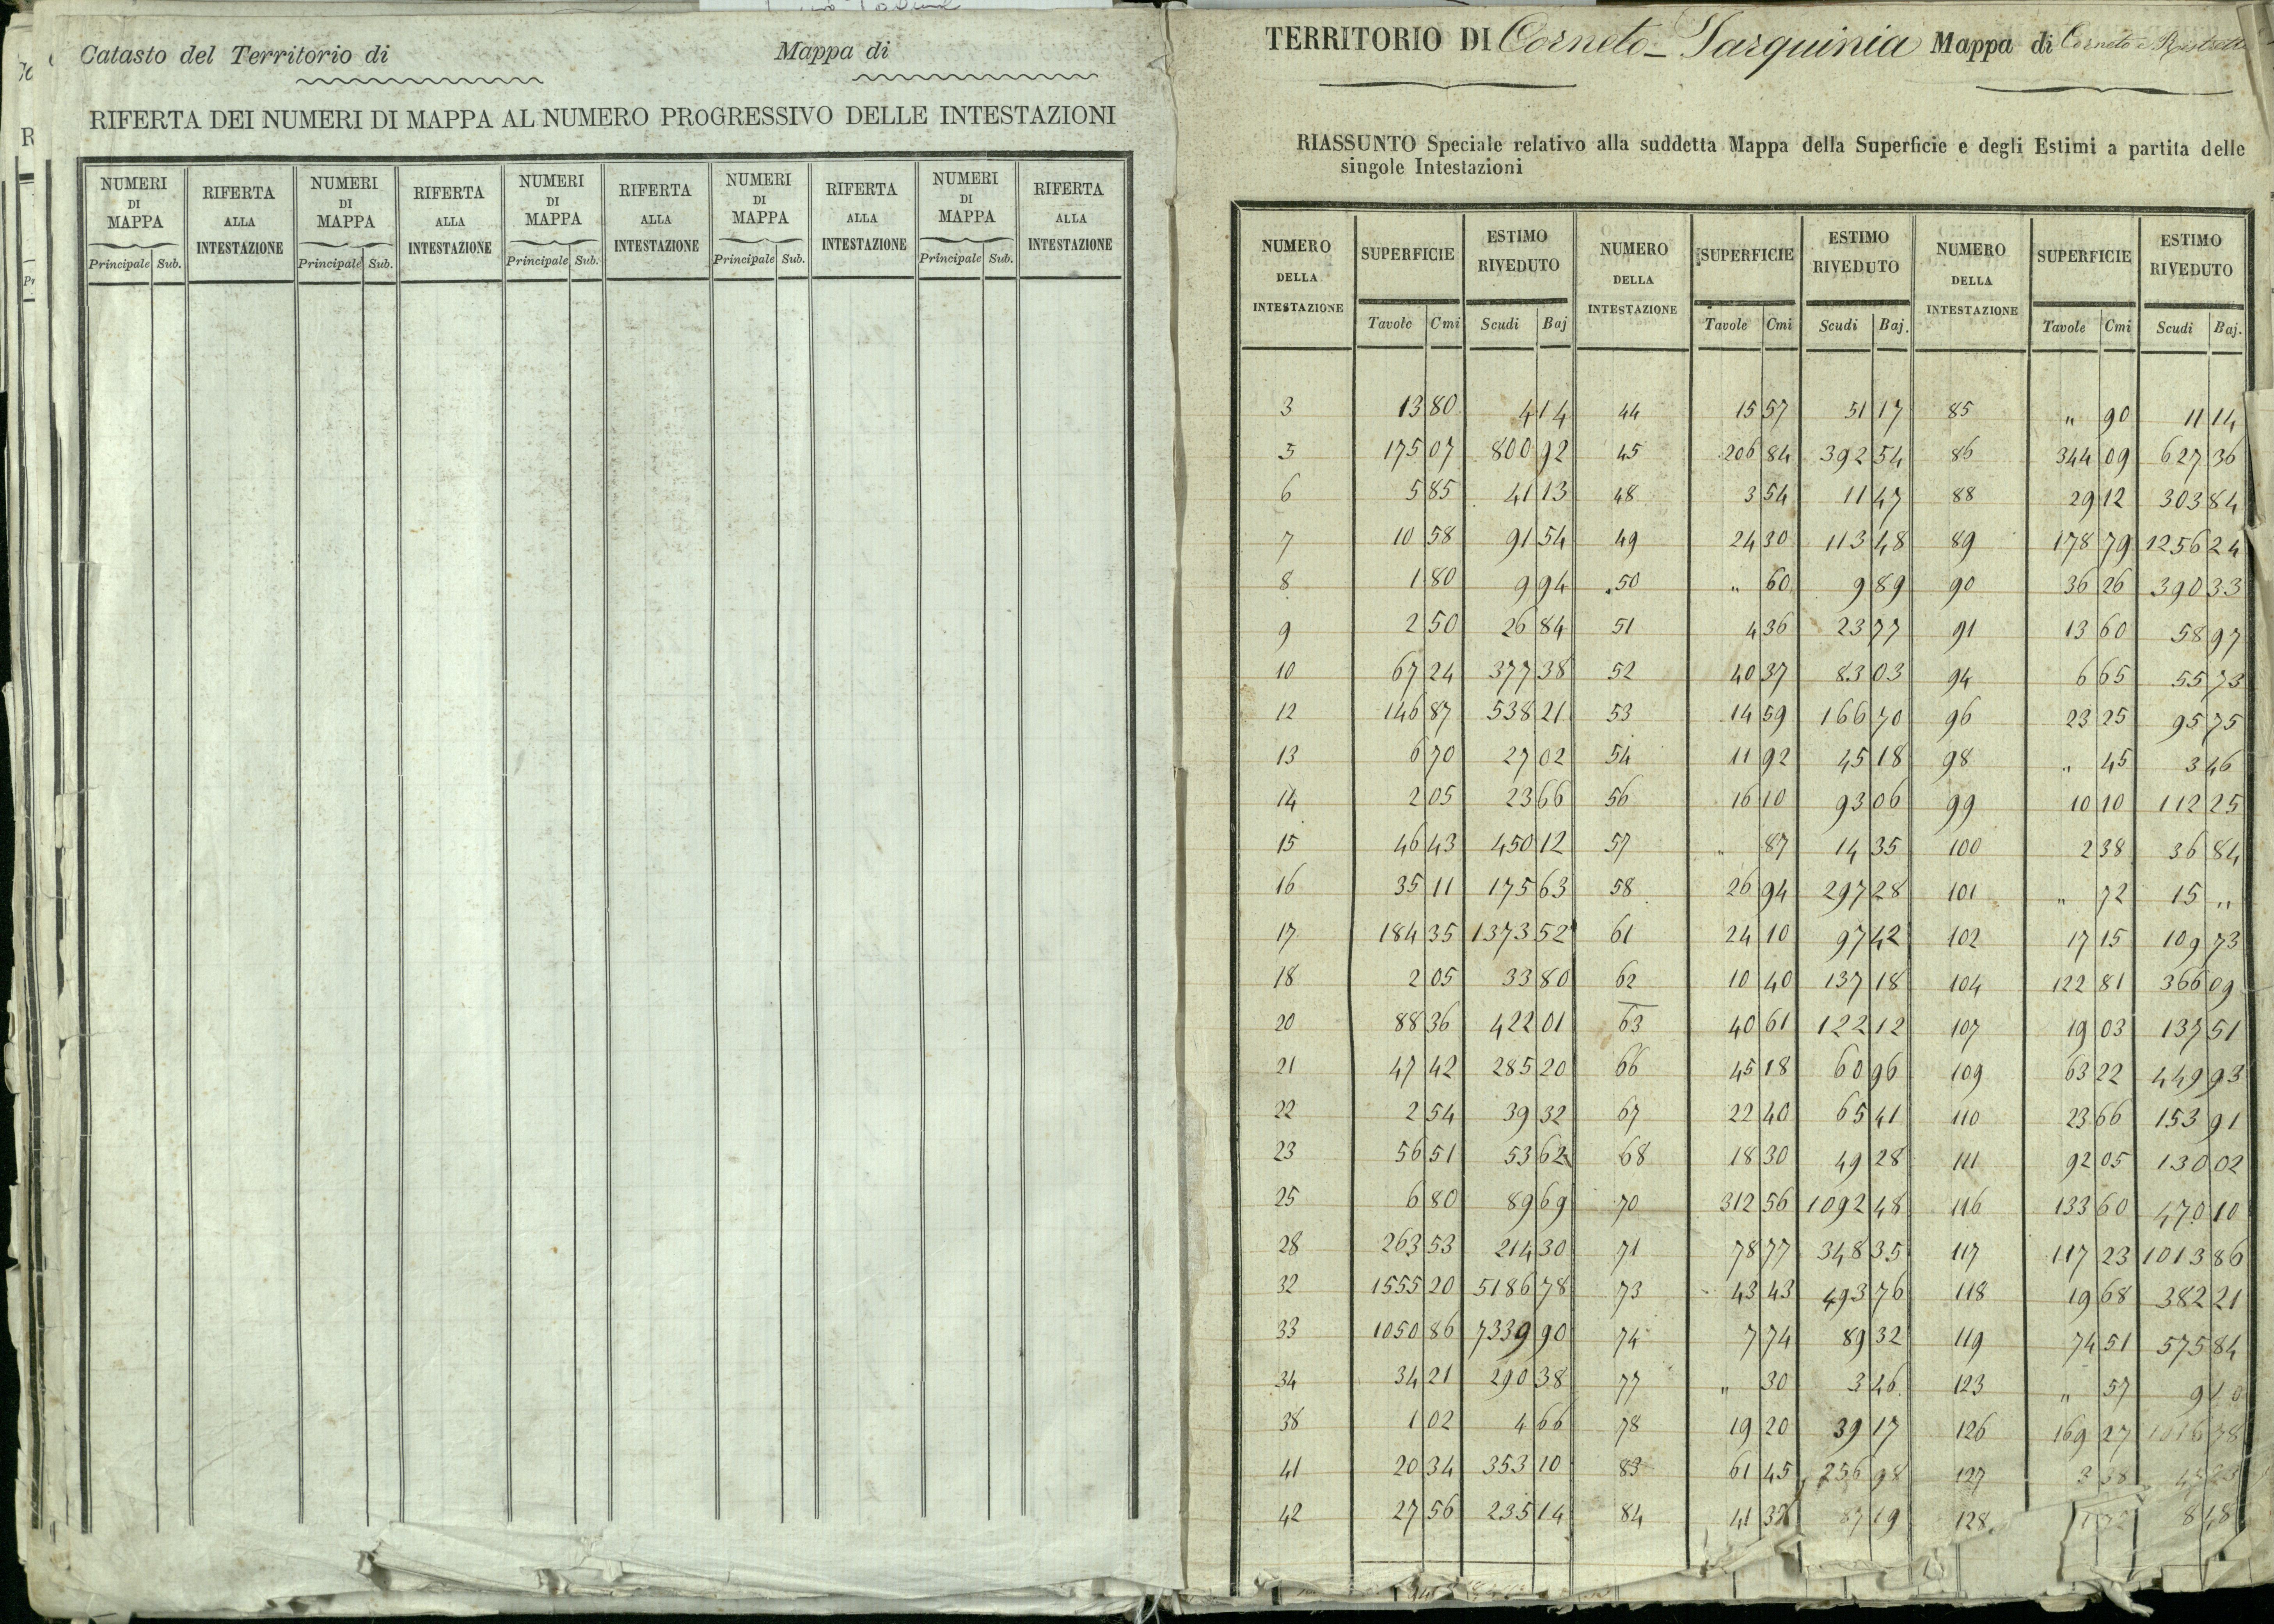 Catasto del Territorio di Mappa di
RIFERTA DEI NUMERI DI MAPPA AL NUMERO PROGRESSIVO DELLE INTESTAZIONI
NUMERI DI MAPPA RIFERTA ALLA INTESTAZIONE NUMERI DI MAPPA RIFERTA ALLA INTESTAZIONE NUMERI DI MAPPA RIFERTA ALLA INTESTAZIONE NUMERI DI MAPPA RIFERTA ALLA INTESTAZIONE NUMERI DI MAPPA RIFERTA ALLA INTESTAZIONE
Principale Sub. Principale Sub. Principale Sub. Principale Sub. Principale Sub.
TERRITORIO DI Corneto-Tarquinia Mappa di Corneto e
RIASSUNTO Speciale relativo alla suddetta Mappa della Superficie e degli Estimi a partita delle
singole Intestazioni
NUMERO DELLA INTESTAZIONE SUPERFICIE ESTIMO RIVEDUTO NUMERO DELLA INTESTAZIONE SUPERFICIE ESTIMO RIVEDUTO NUMERO DELLA INTESTAZIONE SUPERFICIE ESTIMO RIVEDUTO
Tavole Cmi Scudi Baj Tavole Cmi Scudi Baj. Tavole Cmi Scudi Baj.
3 13 80 4 14 44 15 57 51 17 85 " 90 11 14
5 175 07 800 92 45 206 84 392 54 86 344 09 627 36
6 5 85 41 13 48 3 54 11 47 88 29 12 303 84
7 10 58 91 54 49 24 30 113 48 89 178 79 1256 24
8 1 80 9 94 50 " 60 9 89 90 36 26 390 33
9 2 50 26 84 51 4 36 23 77 91 13 60 58 97
10 67 24 377 38 52 40 37 83 03 94 6 65 55 73
12 146 87 538 21 53 14 59 166 70 96 23 25 95 75
13 6 70 27 02 54 11 92 45 18 98 " 45 3 46
14 2 05 23 66 56 16 10 93 06 99 10 10 112 25
15 46 43 450 12 57 " 87 14 35 100 2 38 36 84
16 35 11 175 63 58 26 94 297 28 101 " 72 15 "
17 184 35 1373 52 61 24 10 97 42 102 17 15 109 73
18 2 05 33 80 62 10 40 137 18 104 122 81 366 09
20 88 36 422 01 63 40 61 122 12 107 19 03 137 51
21 47 42 285 20 66 45 18 60 96 109 63 22 449 93
22 2 54 39 32 67 22 40 65 41 110 23 66 153 91
23 56 51 53 62 68 18 30 49 28 111 92 05 130 02
25 6 80 89 69 70 312 56 1092 48 116 133 60 470 10
28 263 53 214 30 71 78 77 348 35 117 117 23 1013 86
32 1555 20 5186 78 73 43 43 493 76 118 19 68 382 21
33 1050 86 7339 90 74 7 74 89 32 119 74 51 575 84
34 34 21 290 38 77 " 30 3 46 123 " 57
38 1 02 4 66 78 19 20 39 17 126 169 27
41 20 34 353 10 83 61 45 256 98 127
42 27 56 235 14 84 41 87 19 128 8 48